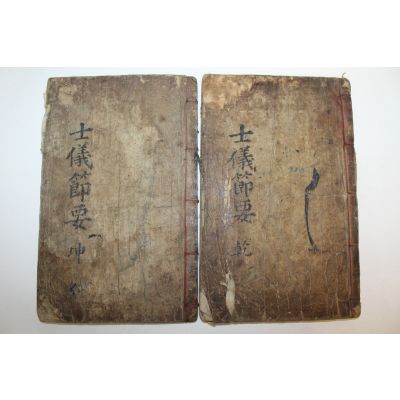 士儀節要 乾
士儀節要 坤